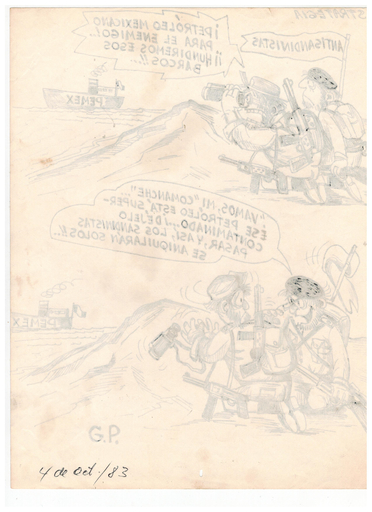 ESTRATEGIA
¡PETRÓLEO MEXICANO
PARA EL ENEMIGO!..
¡¡HUNDIREMOS ESOS
BARCOS!!...
ANTISANDINISTAS
PEMEX
"VAMOS, MI "COMANCHE"...
ESE PETRÓLEO ESTÁ "SUPER-
CONTAMINADO.....DÉJELO
PASAR, Y ASÍ, LOS SANDINISTAS
SE ANIQUILARÁN SOLOS!!..
PEMEX
G.P.
4 de Oct./83